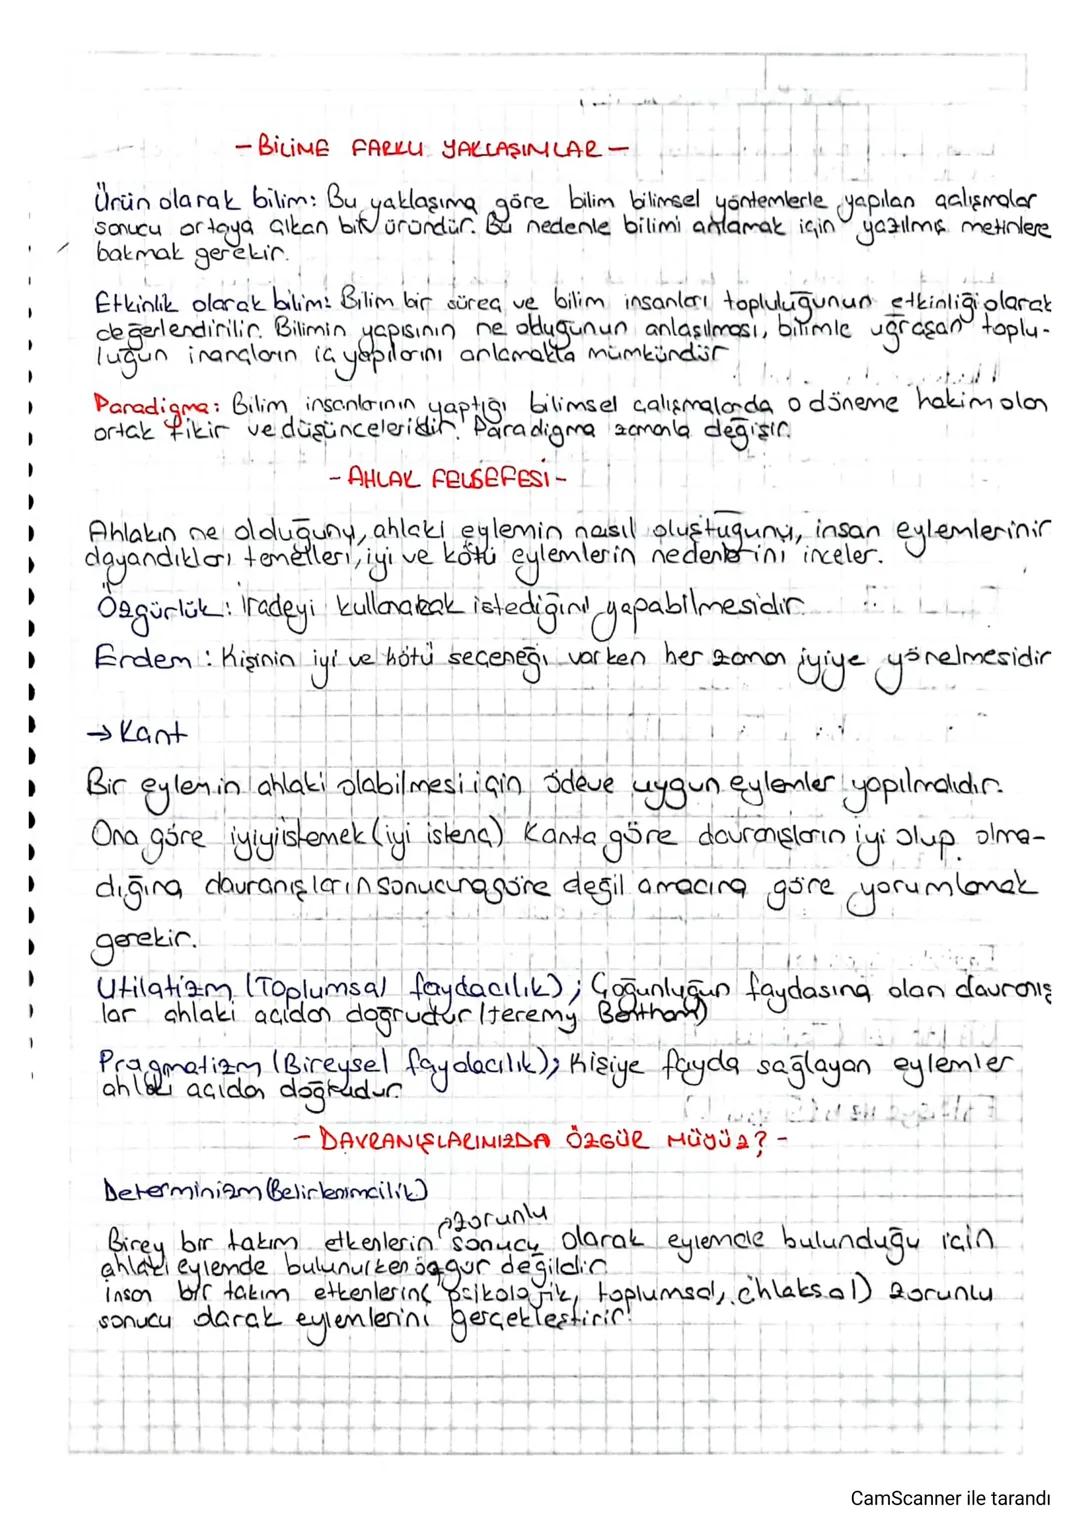 - BİLİME FARKLI YAKLAŞIMLAR -
Ürün olarak bilim: Bu yaklaşıma göre bilim bilimsel yöntemlerle yapılan çalışmalar
sonucu ortaya çıkan bir üründür. Bu nedenle bilimi anlamak için yazılmış metinlere
bakmak gerekir.
Etkinlik olarak bilim: Bilim bir süreç ve bilim insanları topluluğunun etkinliği olarak
değerlendirilir. Bilimin yapısının ne olduğunun anlaşılması, bilimle uğraşan toplu-
luğun inançların iç yapılarını anlamakta mümkündür
Paradigma: Bilim insanlarının yaptığı bilimsel çalışmalarda o döneme hakim olan
ortak fikir ve düşünceleridir. Paradigma zamanla değişir.
- AHLAK FELSEFESİ -
Ahlakın ne olduğunu, ahlaki eylemin nasıl oluştuğunu, insan eylemlerinin
dayandıkları temelleri, iyi ve kötü eylemlerin nedenlerini inceler.
Özgürlük: İradeyi kullanarak istediğini yapabilmesidir.
Erdem: Kişinin iyi ve kötü seçeneği varken her zaman iyiye yönelmesidir
→ Kant
Bir eylemin ahlaki olabilmesi için ödeve uygun eylemler yapılmalıdır.
Ona göre iyiyi istemek (iyi istenç) Kanta göre davranışların iyi olup olma-
dığına davranışların sonucuna göre değil amacına göre yorumlamak
gerekir.
Utilatizm (Toplumsal faydacılık); Çoğunluğun faydasına olan davranış
lar ahlaki açıdan doğrudur (Jeremy Bentham)
Pragmatizm (Bireysel faydacılık); Kişiye fayda sağlayan eylemler
ahlaki açıdan doğrudur.
- DAVRANIŞLARIMIZDA ÖZGÜR MÜYÜZ? -
Determinizm (Belirlenimcilik)
zorunlu
Birey bir takım etkenlerin sonucu olarak eylemde bulunduğu için
ahlaki eylemde bulunurken özgür değildir
insan bir takım etkenlerin( psikolojik, toplumsal, ahlaksal) zorunlu
sonucu olarak eylemlerini gerçekleştirir.
CamScanner ile tarandı